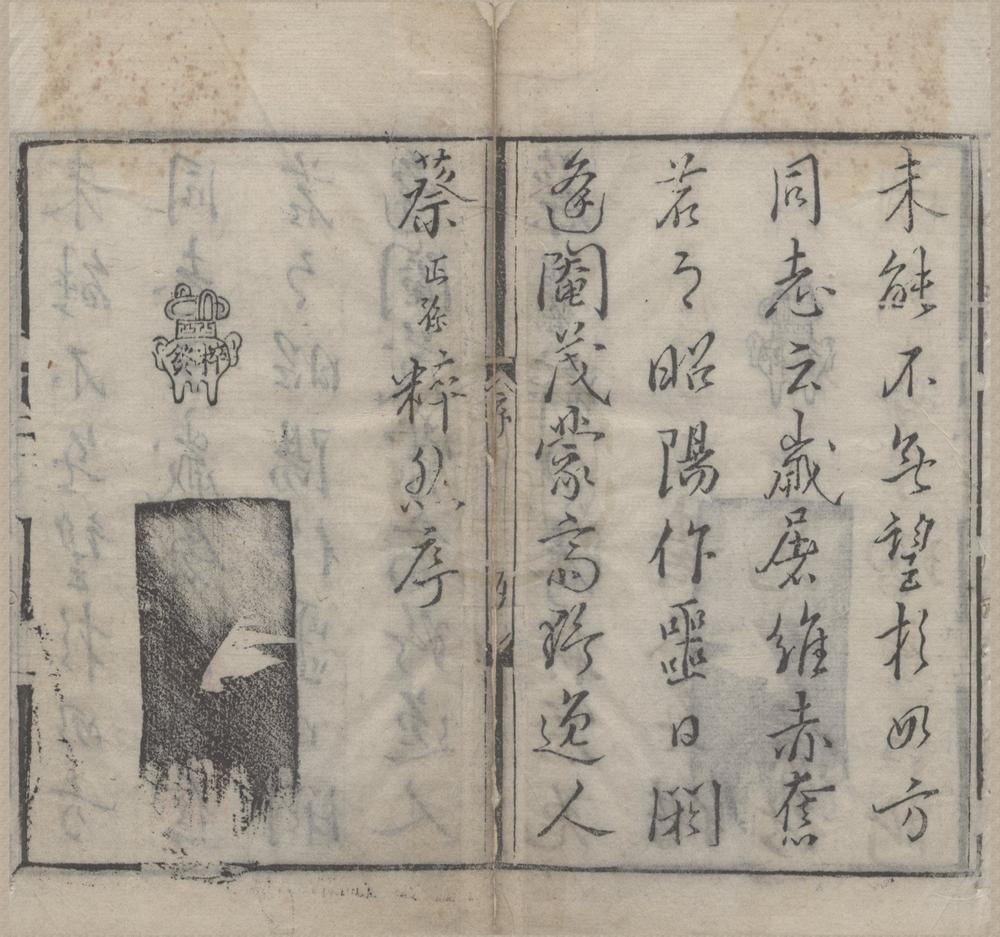 未能不無望於四方
同志云歲屠維赤奮
若之昭陽作噩日閼
逢閹茂蒙齋野逸人
蔡正孫粹然序
粹然
序